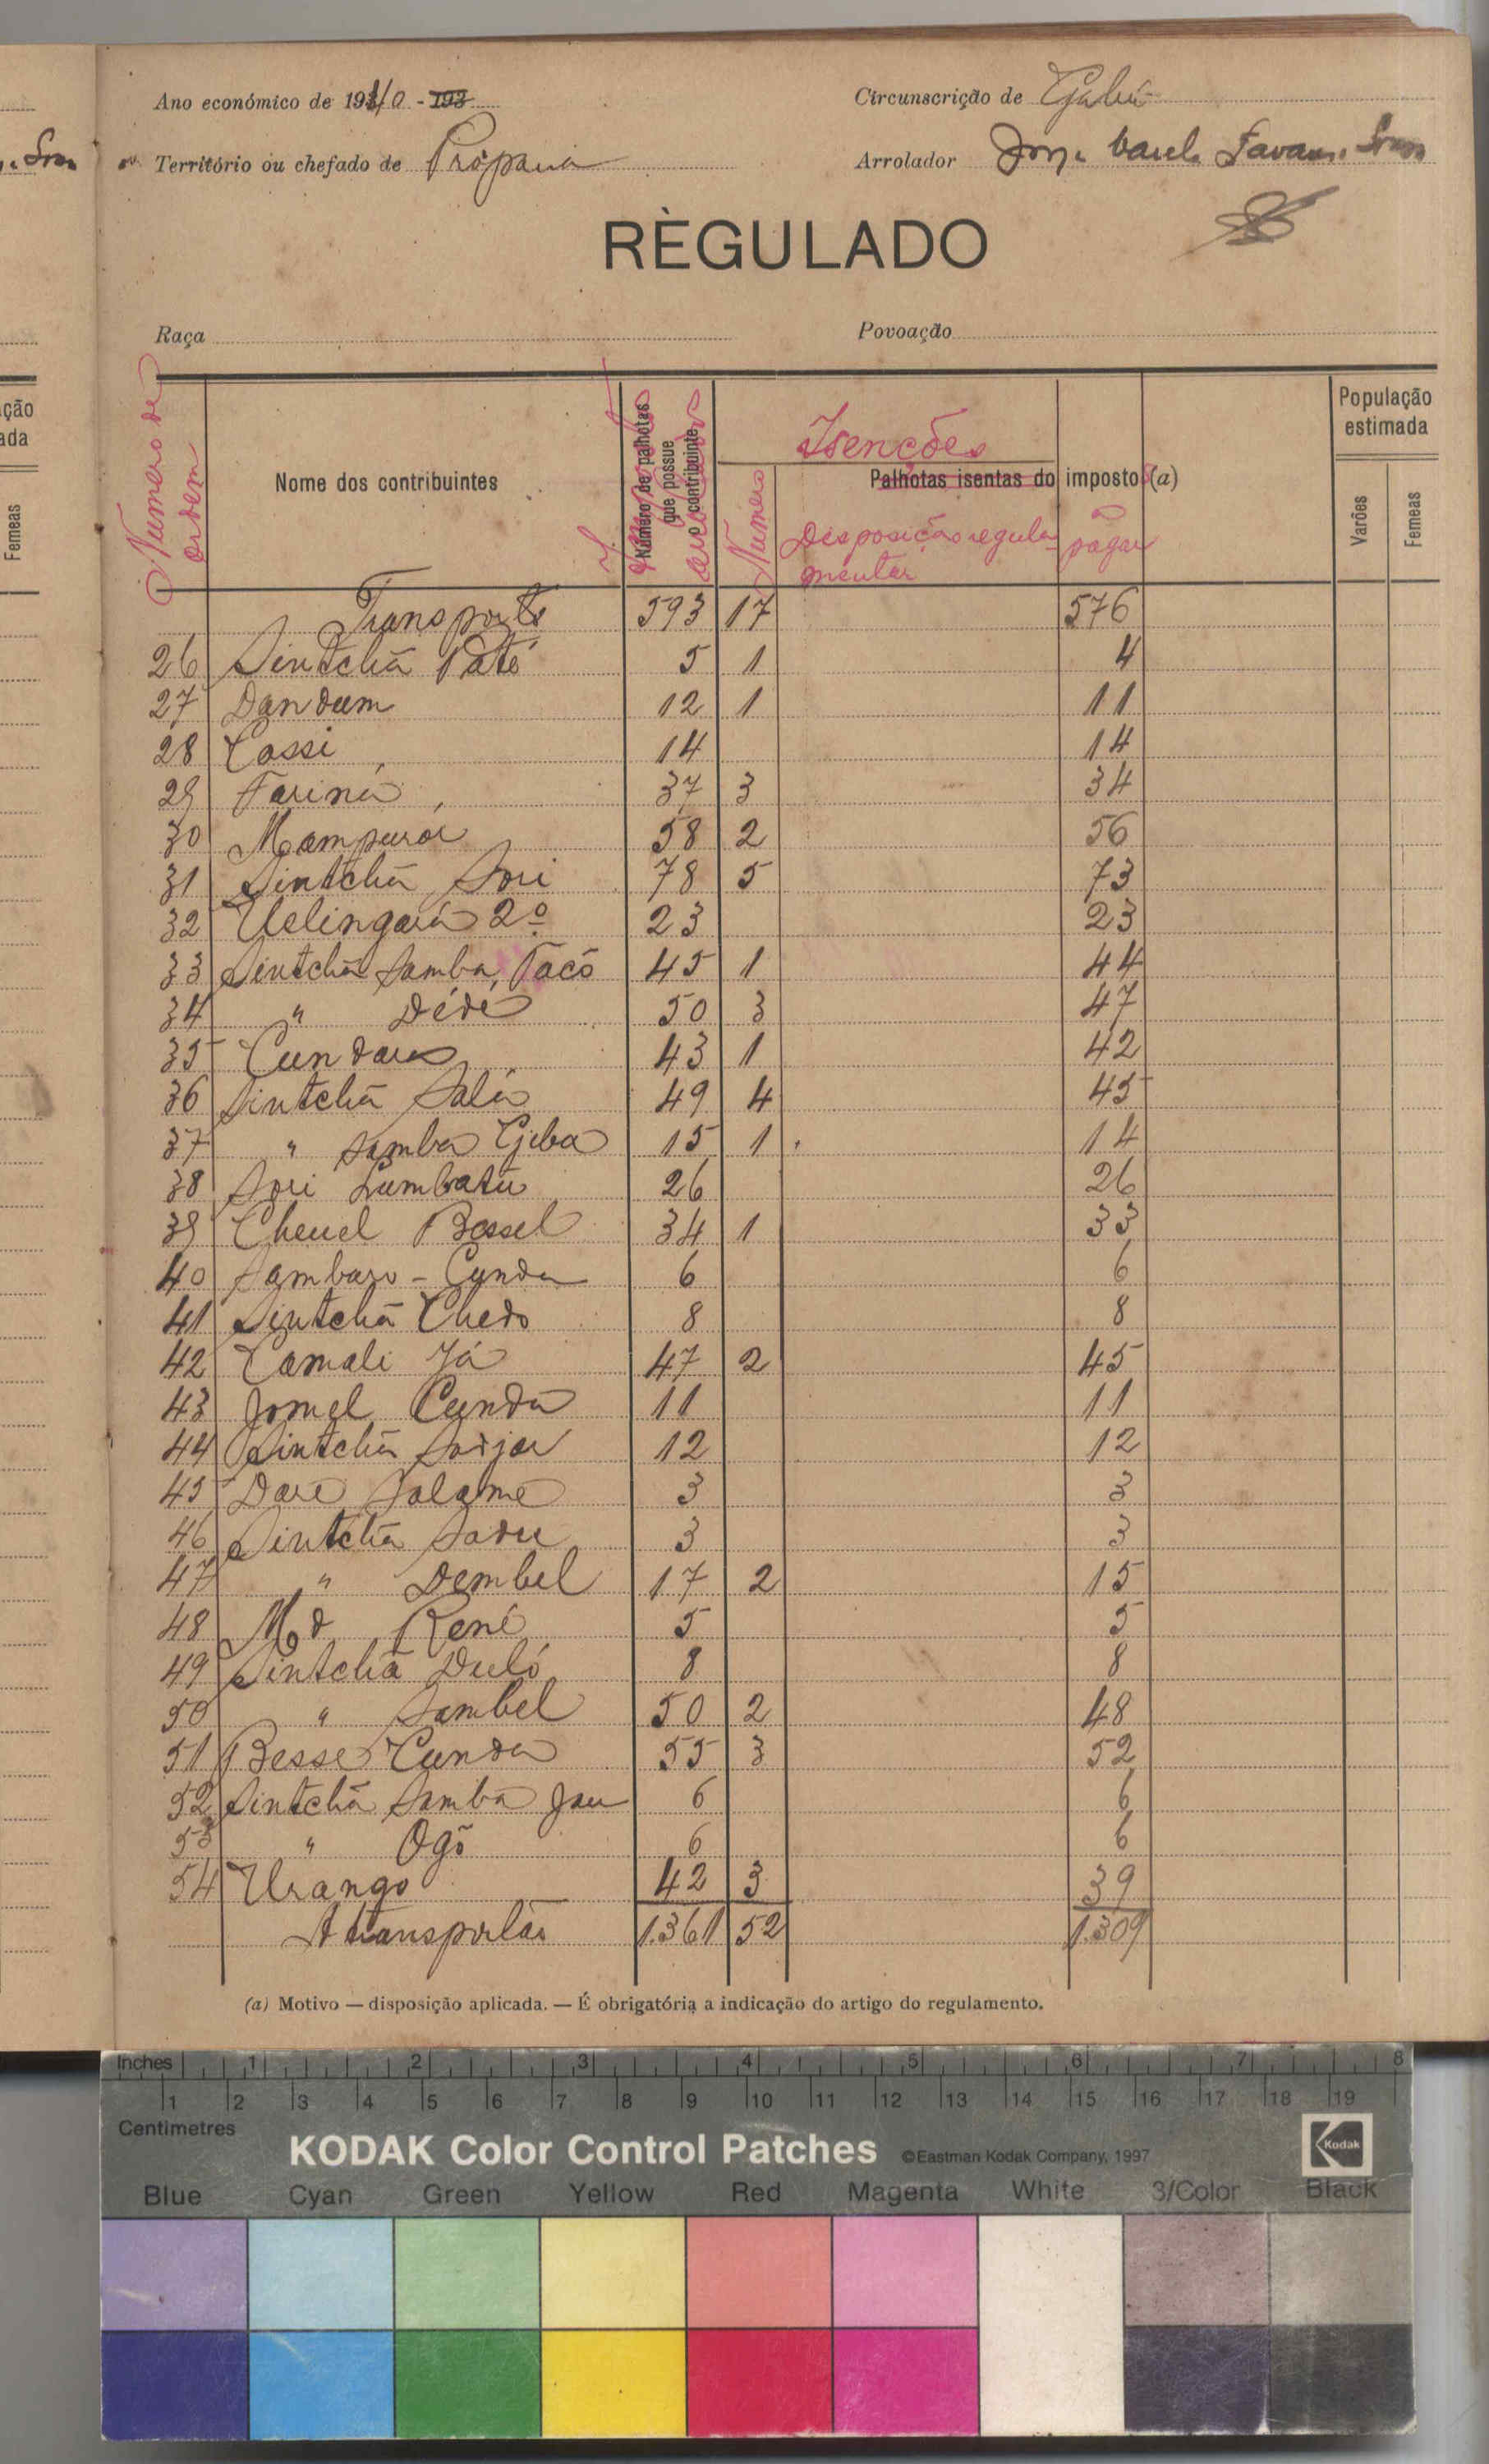 Ano económico de 1940 - 193
Circunscrição de Gabú
Território ou chefado de Própana
Arrolador Jorge
RÈGULADO
Raça
Povoação
Numero de ordem
Nome dos contribuintes
Número de palhotas que possue o contribuinte
Isenções
Palhotas isentas do imposto (a)
Número
Disposição regulamentar
pagar
População estimada
Varões
Femeas
Transporte 593 17 576
26 Sintchã Paté 5 1 4
27 Dandum 12 1 11
28 Cassi 14 14
29 Fariná 37 3 34
30 Mampuror 58 2 56
31 Sintchã Sori 78 5 73
32 Uelingará 2º 23 23
33 Sintchã Samba Tacó 45 1 44
34 " Dédé 50 3 47
35 Cundares 43 1 42
36 Sintchã Salá 49 4 45
37 " Samba Geba 15 1 14
38 Sori Lumbatu 26 26
39 Cheuel Bossel 34 1 33
40 Sambaro - Cunda 6 6
41 Sintchã Chedo 8 8
42 Camali Já 47 2 45
43 Jomel Cunda 11 11
44 Sintchã Sorjar 12 12
45 Dare Salame 3 3
46 Sintchã Sadu 3 3
47 " Dembel 17 2 15
48 Md René 5 5
49 Sintchã Duló 8 8
50 " Sambel 50 2 48
51 Besse Cunda 55 3 52
52 Sintchã Samba Jau 6 6
53 " Ogõ 6 6
54 Urango 42 3 39
A transportar 1.361 52 1.309
(a) Motivo — disposição aplicada. — É obrigatória a indicação do artigo do regulamento.
ção
ada
Femeas
Inches 1 2 3 4 5 6 7 8
1 2 3 4 5 6 7 8 9 10 11 12 13 14 15 16 17 18 19
Centimetres
KODAK Color Control Patches ©Eastman Kodak Company, 1997 Kodak
Blue Cyan Green Yellow Red Magenta White 3/Color Black